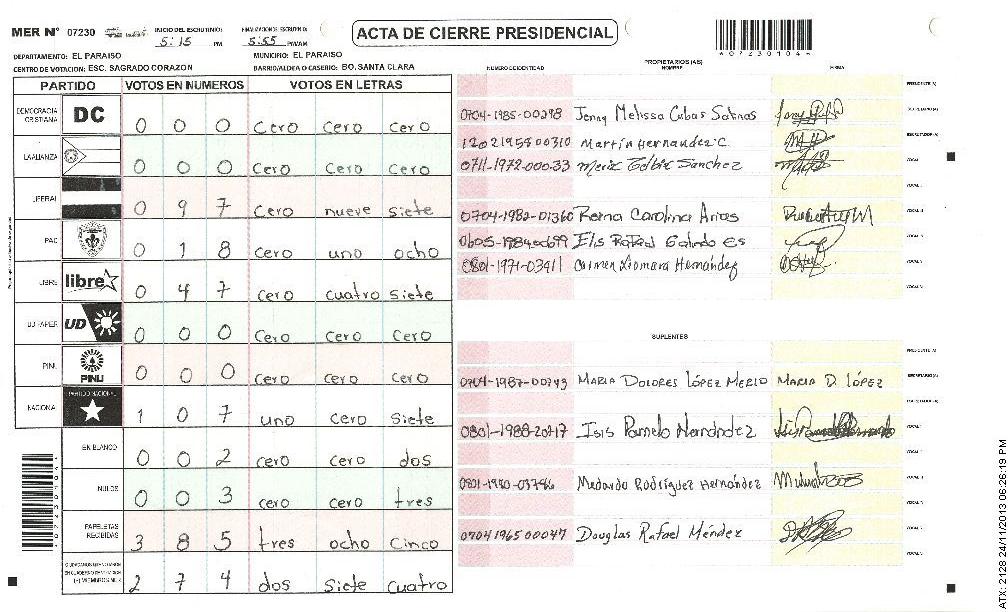 MER Nº 07230
INICIO DEL ESCRUTINIO: 5:15 PM
FINALIZACION DE ESCRUTINIO: 5:55 PM/AM
ACTA DE CIERRE PRESIDENCIAL
4072301044
DEPARTAMENTO: EL PARAISO
MUNICIPIO: EL PARAISO
CENTRO DE VOTACION: ESC. SAGRADO CORAZON
BARRIO/ALDEA O CASERIO: BO. SANTA CLARA
PARTIDO VOTOS EN NUMEROS VOTOS EN LETRAS
DEMOCRACIA CRISTIANA DC 0 0 0 cero cero cero
LA ALIANZA 0 0 0 cero cero cero
LIBERAL 0 9 7 cero nueve siete
PAC 0 1 8 cero uno ocho
LIBRE libre 0 4 7 cero cuatro siete
UD FAPER UD 0 0 0 cero cero cero
PINU PINU 0 0 0 cero cero cero
NACIONAL PARTIDO NACIONAL 1 0 7 uno cero siete
EN BLANCO 0 0 2 cero cero dos
NULOS 0 0 3 cero cero tres
PAPELETAS RECIBIDAS 3 8 5 tres ocho cinco
(+) MIEMBROS MER 2 7 4 dos siete cuatro
NUMERO IDENTIDAD
PROPIETARIOS (AS)
NOMBRE
FIRMA
PRESIDENTE (A)
0704-1985-00298 Jenny Melissa Cubas Salinas SECRETARIO (A)
1202195800310 Martin Hernandez C. ESCRUTADOR (A)
0711-1972-00033 Sanchez VOCAL I
0704-1982-01360 Reina Carolina Arias
0801-1971-03411 Carmen Xiomara Hernández
SUPLENTES
PRESIDENTE (A)
0704-1987-00743 MARIA DOLORES LÓPEZ MERLO MARIA D. LÓPEZ SECRETARIO (A)
ESCRUTADOR (A)
0801-1988-20417 Isis Pamela Hernández
Medardo Rodríguez Hernández
0704196500047 Douglas Rafael Méndez
ATX: 2128 24/11/2013 06:26:19 PM